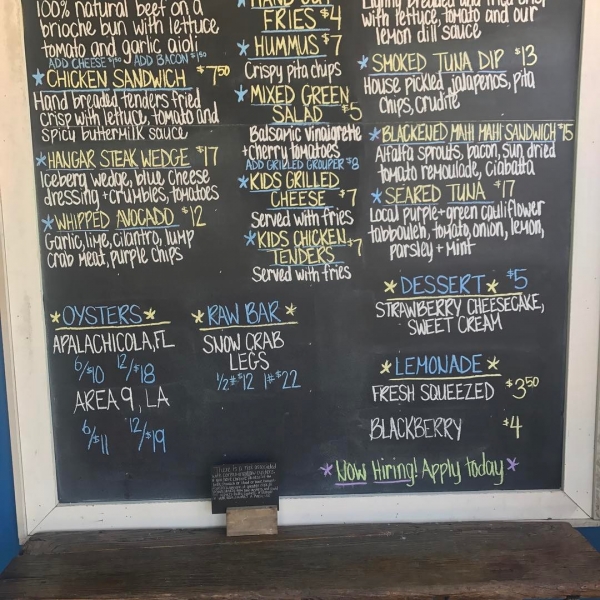 100% natural beef on a
brioche bun with lettuce
tomato and garlic aioli
ADD CHEESE $1.00 ADD BACON $1.50
CHICKEN SANDWICH $7.50
Hand breaded tenders fried
crisp with lettuce, tomato and
spicy buttermilk sauce
HANGAR STEAK WEDGE $17
Iceberg wedge, blue cheese
dressing + crumbles, tomatoes
WHIPPED AVOCADO $12
Garlic, lime, cilantro, lump
crab meat, purple chips
OYSTERS
APALACHICOLA, FL
6/$10 12/$18
AREA 9, LA
6/$11 12/$19
HAND CUT
FRIES $4
HUMMUS $7
Crispy pita chips
MIXED GREEN
SALAD $5
Balsamic vinaigrette
+ cherry tomatoes
ADD GRILLED GROUPER $8
KIDS GRILLED
CHEESE $7
Served with fries
KIDS CHICKEN
TENDERS $7
Served with fries
RAW BAR
SNOW CRAB
LEGS
1/2# $12 1# $22
Lightly breaded and fried
with lettuce tomato and our
lemon dill sauce
SMOKED TUNA DIP $13
House pickled jalapenos, pita
chips, crudite
BLACKENED MAHI MAHI SANDWICH $15
Alfalfa sprouts, bacon, sun dried
tomato remoulade, ciabatta
SEARED TUNA $17
Local purple + green cauliflower
tabbouleh, tomato, onion, lemon,
parsley + mint
DESSERT $5
STRAWBERRY CHEESECAKE,
SWEET CREAM
LEMONADE
FRESH SQUEEZED $3.50
BLACKBERRY $4
Now Hiring! Apply today